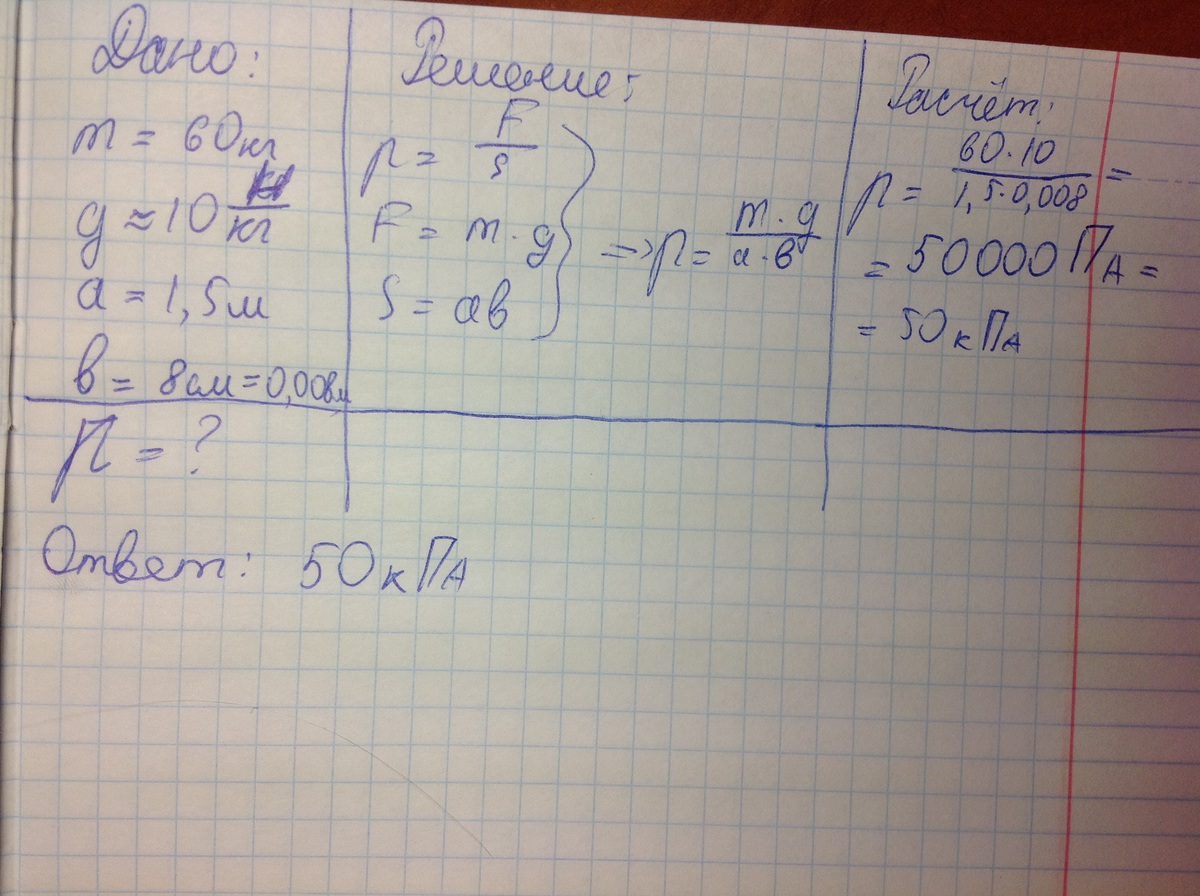 Дано:
m = 60кг
g ≈ 10 Н/кг
a = 1,5м
в = 8см=0,008м
p = ?
Решение:
p = F/S
F = m · g
S = aв
=> p = m · g / a · в
Расчёт:
p = 60 · 10 / 1,5 · 0,008 =
= 50000 ПА =
= 50 кПА
Ответ: 50 кПА